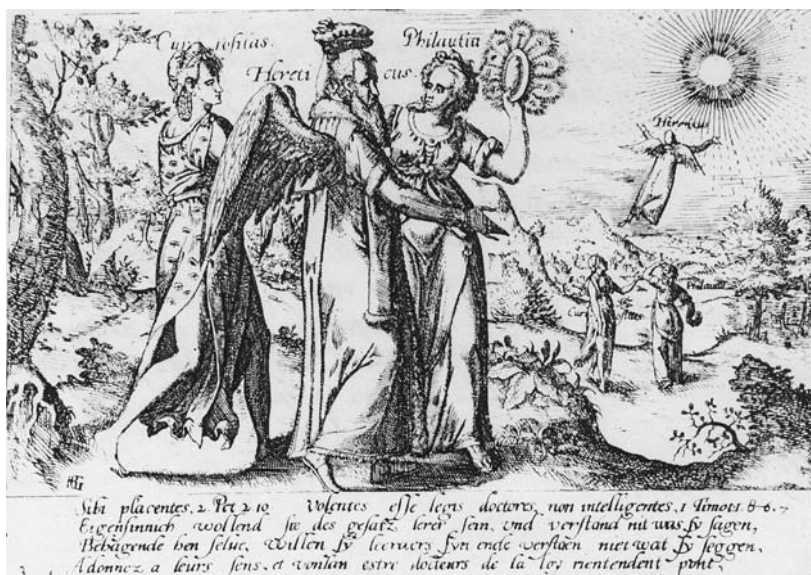 Curiositas.
Philautia
Hereticus.
Hereticus
Curiositas
Philautia
HG
Sibi placentes. 2. Pet 2 10 Volentes esse legis doctores, non intelligentes, 1 Timot 1. 6. 7
Eigensinnich wollend sie des gesatz lerer sein, vnd verstand nit was sy sagen,
Behagende hen selue, willen sy leeraers syn ende verstaen niet wat sy seggen,
Adonnez a leurs sens, et voulan estre docteurs de la loy nentendent